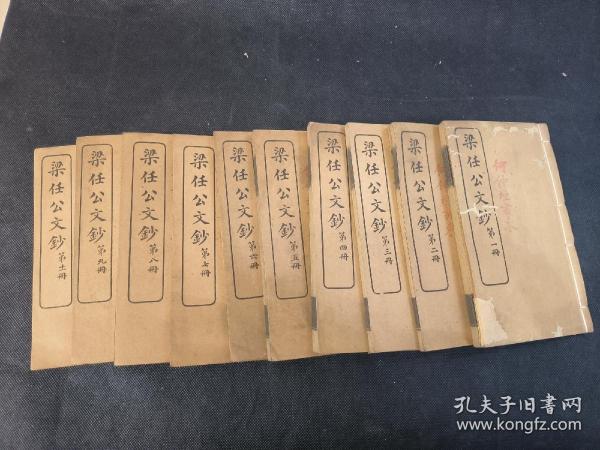 梁任公文鈔 第一冊
梁任公文鈔 第二冊
梁任公文鈔 第三冊
梁任公文鈔 第四冊
梁任公文鈔 第五冊
梁任公文鈔 第六冊
梁任公文鈔 第七冊
梁任公文鈔 第八冊
梁任公文鈔 第九冊
梁任公文鈔 第十一冊
孔夫子旧書网
www.kongfz.com